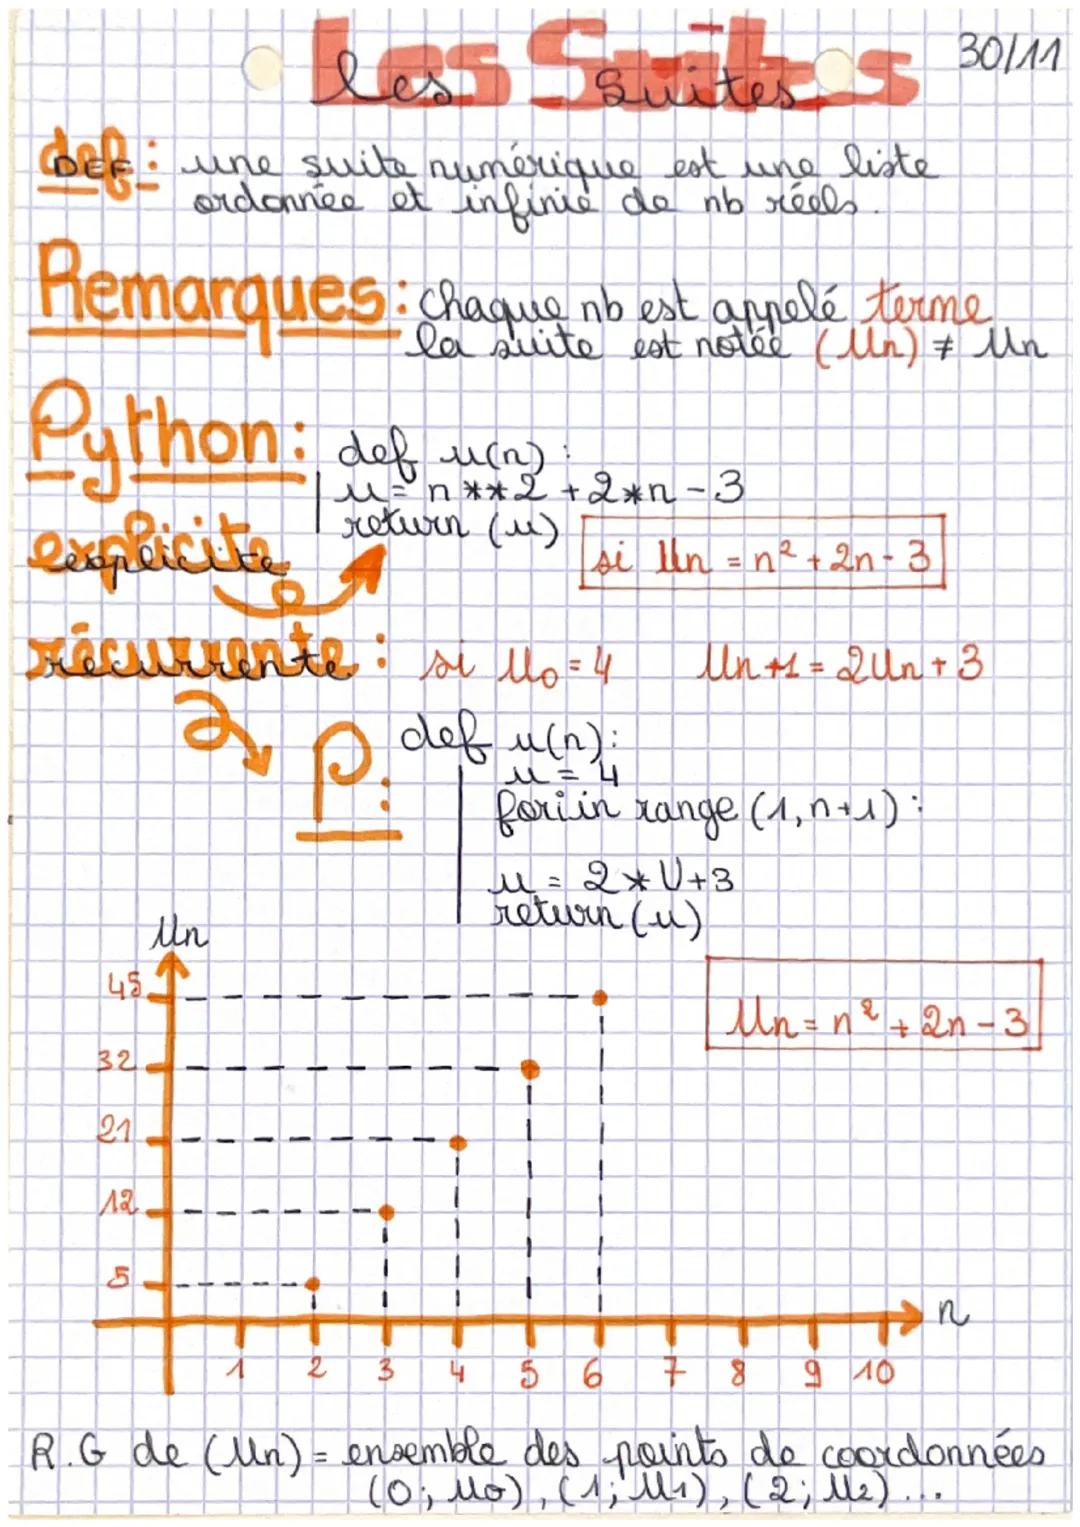 Les Suites
les suites
30/11
def :
DEF : une suite numérique est une liste
ordonnée et infinie de nb réels.
Remarques : chaque nb est appelé terme
la suite est notée (Un) ≠ Un
Python : def u(n) :
u = n **2 + 2*n - 3
return (u)
explicite
si Un = n² + 2n - 3
récurrente : si U0 = 4 Un+1 = 2Un + 3
P : def u(n) :
u = 4
for i in range (1, n+1) :
u = 2 * U + 3
return (u)
Un
45
Un = n² + 2n - 3
32
21
12
5
n
1 2 3 4 5 6 7 8 9 10
R.G de (Un) = ensemble des points de coordonnées
(0; U0), (1; U1), (2; U2) ...